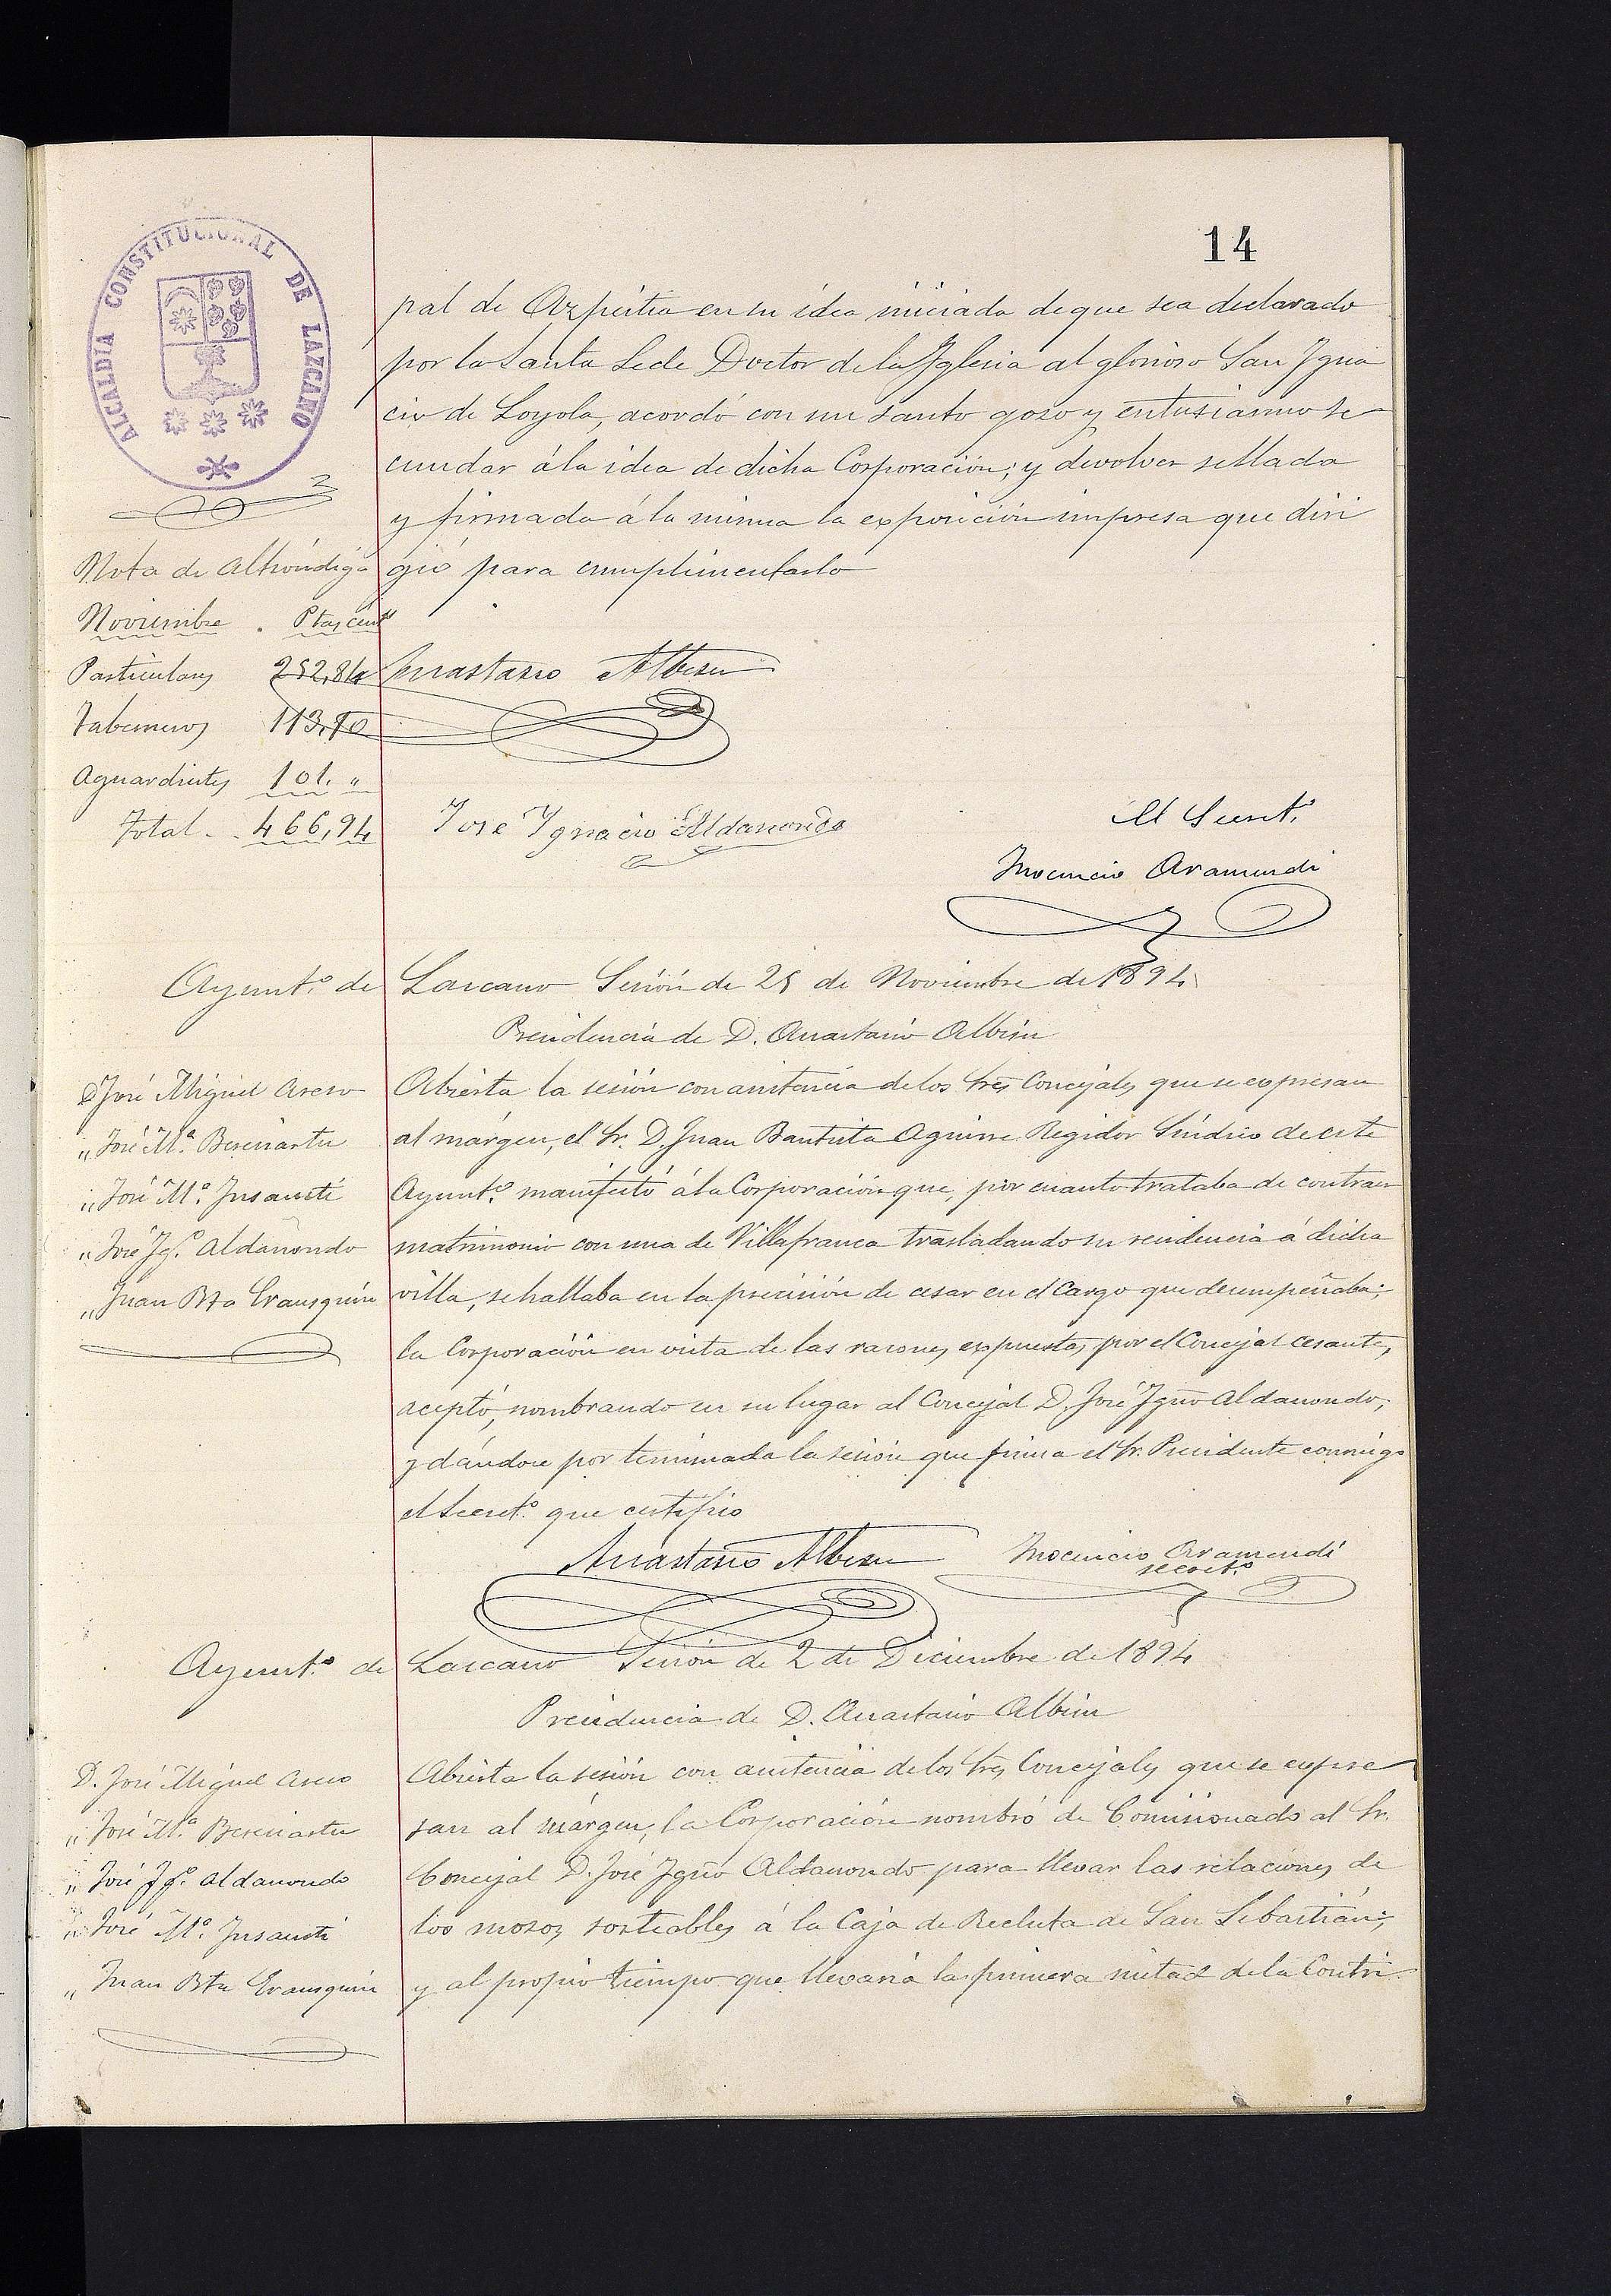 14
ALCALDIA CONSTITUCIONAL DE LAZCANO
pal de Azpeitia en su idea iniciada de que sea declarado
por la Santa Sede Doctor de la Yglesia al glorioso San Ygna
cio de Loyola, acordó con un santo gozo y entusiasmo se
cundar á la idea de dicha Corporación; y devolver sellada
y firmada á la misma la exposición impresa que diri
gió para cumplimentarlo
Nota de Alhóndiga
Noviembre . Ptas cents
Particulares 252,84
Taberneros 113,10
Aguardientes 101. "
Total . . 466,94
Anastasio Albisu
José Ygnacio Aldanondo
El Secret.º
Ynocencio Aramendi
Ayunt.º de Lascano Sesión de 25 de Noviembre de 1894
Presidencia de D. Anastasio Albisu
D José Miguel Aseso
" José M.ª Bereciartu
" José M.ª Insausti
" José Yg.º Aldanondo
" Juan Bta Erausquin
Abierta la sesión con asistencia de los Sres Concejales que se expresan
al márgen, el Sr. D. Juan Bautista Aguirre Regidor Síndico de este
Ayunt.º manifestó á la Corporación que, por cuanto trataba de contraer
matrimonio con una de Villafranca trasladando su residencia á dicha
villa, se hallaba en la precisión de cesar en el Cargo que desempeñaba;
la Corporación en vista de las razones expuestas por el Concejal cesante,
aceptó, nombrando en su lugar al Concejal D. José Ygnº Aldanondo;
y dándose por terminada la sesión que firma el Sr. Presidente conmigo
el Secret.º que certifico
Anastasio Albisu
Ynocencio Aramendi
secret.º
Ayunt.º de Lascano Sesión de 2 de Diciembre de 1894
Presidencia de D. Anastasio Albisu
D. José Miguel Aseso
" José M.ª Bereciartu
" José Yg.º Aldanondo
" José M.ª Insausti
" Juan Bta Erausquin
Abierta la sesión con asistencia de los Sres Concejales que se expre
san al márgen, la Corporación nombró de Comisionado al Sr.
Concejal D. José Ygnº Aldanondo para llevar las relaciones de
los mozos sorteables á la Caja de Recluta de San Sebastián;
y al propio tiempo que llevaria la primera mitad de la Contri-